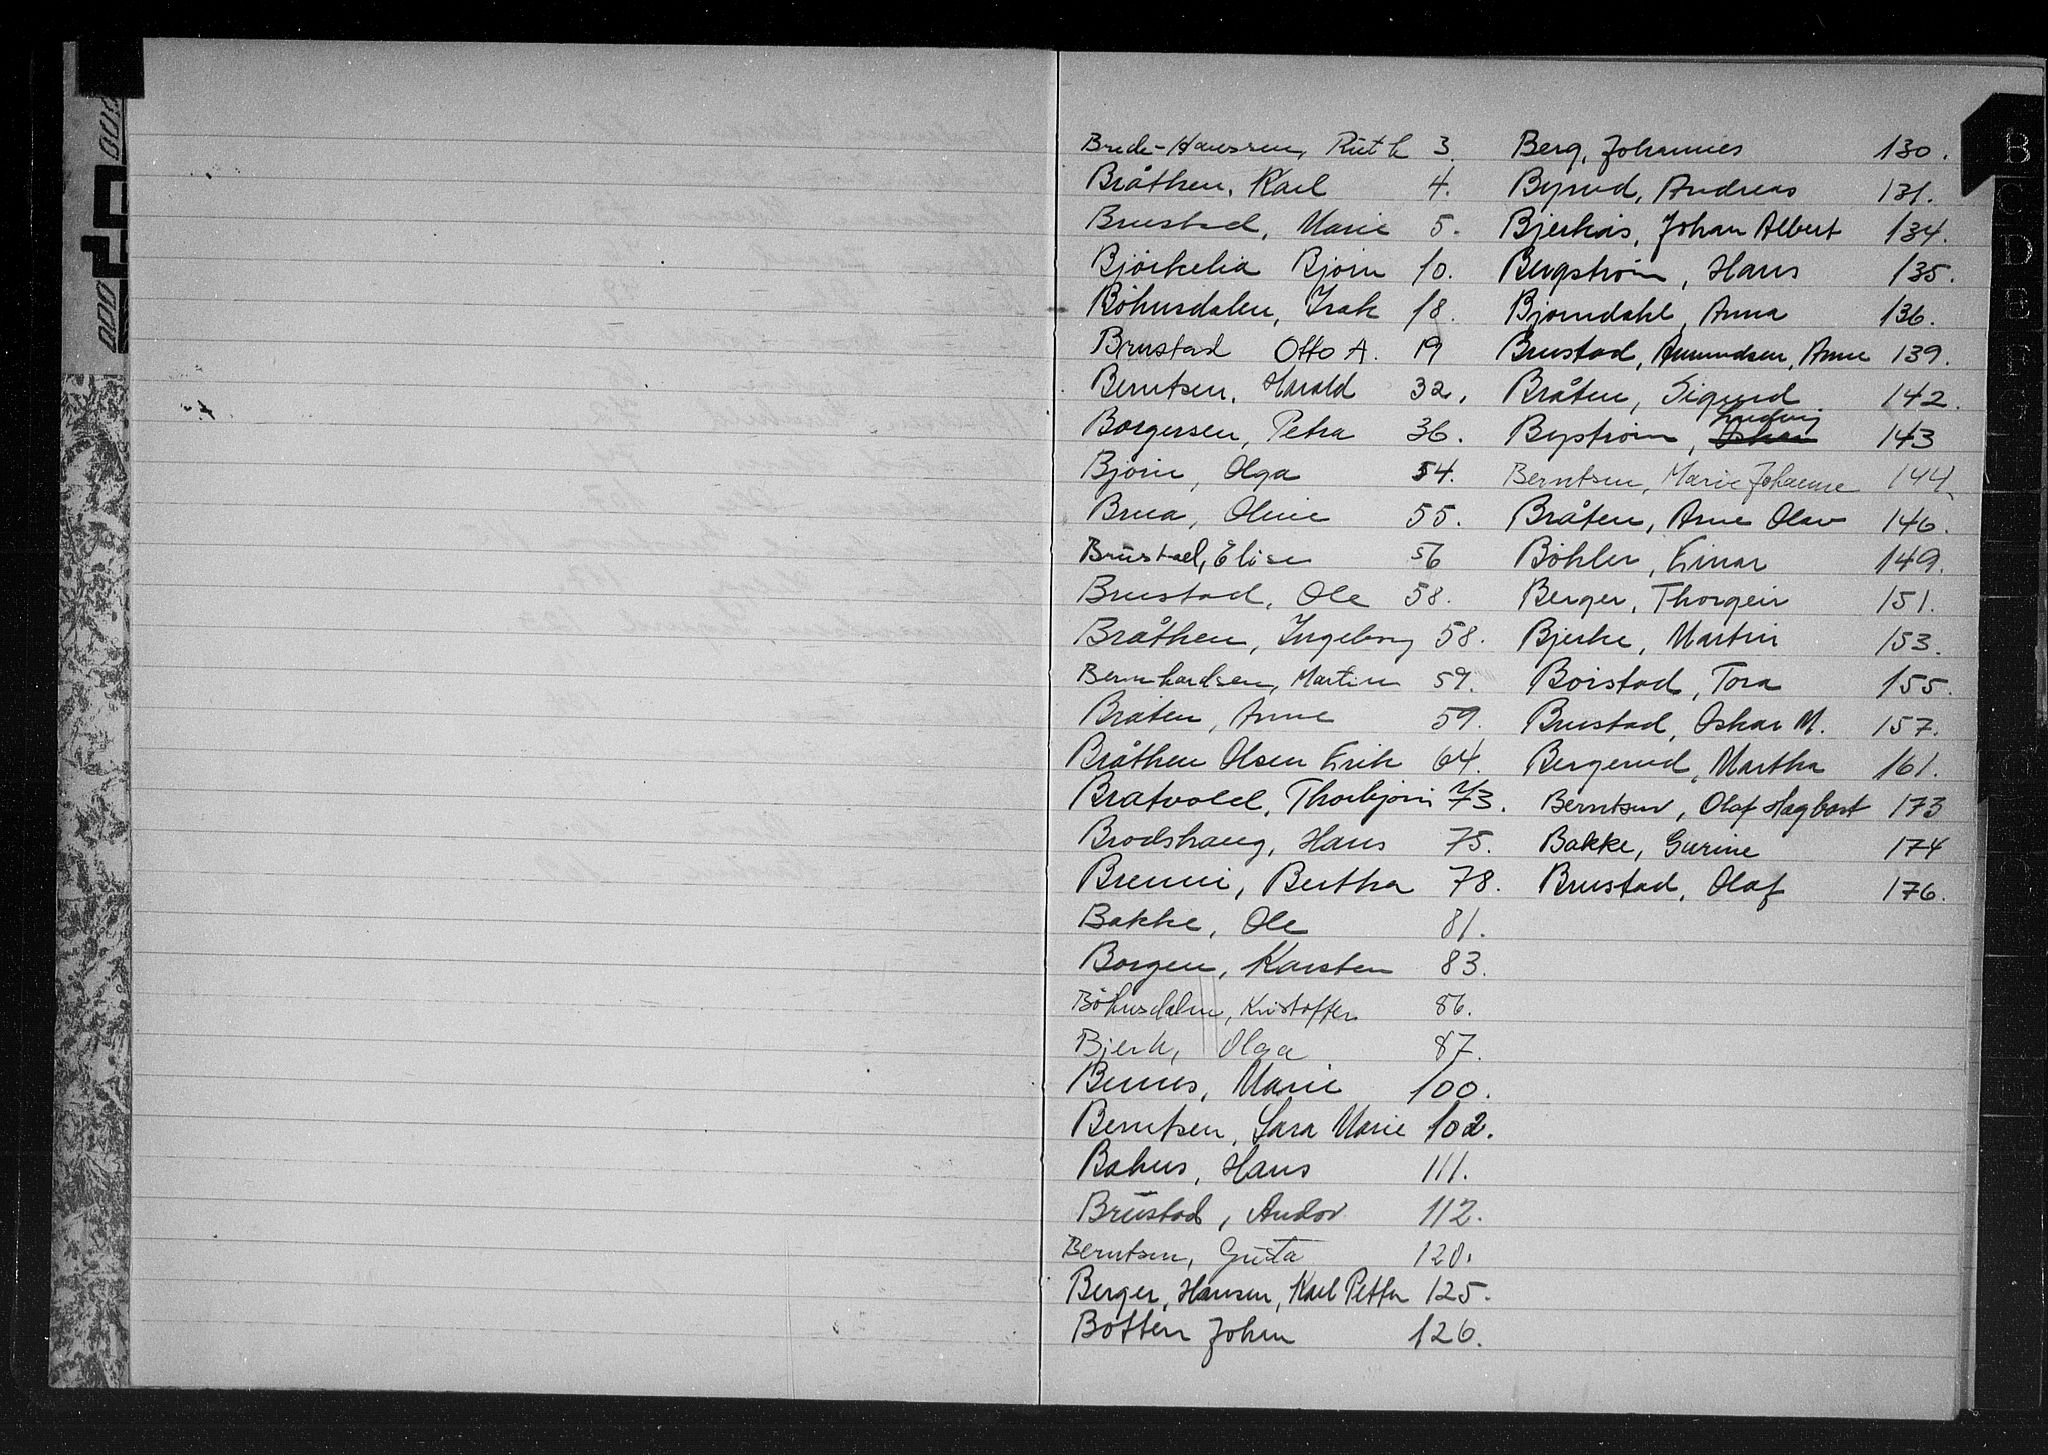 Brede-Hanssen, Ruth 3.
Bråthen, Karl 4.
Brustad, Marie 5.
Björkelia Bjørn 10.
Böhnsdalen, Isak 18.
Brustad Otto A. 19
Berntsen, Harald 32.
Borgersen, Petra 36.
Bjørn, Olga 54.
Brua, Oline 55.
Brustad, Elise 56
Brustad, Ole 58.
Bråthen, Ingeborg 58.
Bernhardsen, Martin 59.
Bråten, Anne 59.
Bråthen Olsen Erik 64.
Bratvold, Thorbjørn 73.
Brodshaug, Hans 75.
Brenni, Bertha 78.
Bakke, Ole 81.
Borgen, Karsten 83.
Böhnsdalen, Kristoffer 86.
Bjerk, Olga 87.
Marie 100.
Berntsen, Sara Marie 102.
Bahus, Hans 111.
Brustad, Andor 112.
Berntsen, Gusta 120.
Berger, Hansen, Karl Petter 125.
Botten Johan 126.
Berg, Johannes 130.
Byrud, Andreas 131.
Bjerkås, Johan Albert 134.
Bergstrøm, Hans 135.
Bjørndahl, Anna 136.
Brustad, Amundsen, Anne 139.
Bråten, Sigurd 142.
Ludvig
Bystrøm, Oskar 143
Berntsen, Marie Johanne 144
Bråten, Arne Olav 146.
Böhler, Einar 149.
Berger, Thorgeir 151.
Bjerke, Martin 153.
Børstad, Tora 155.
Brustad, Oskar M. 157.
Bergerud, Martha 161.
Berntsen, Olaf Hagbart 173
Bakke, Gurine 174
Brustad, Olaf 176.
B
C
D
E